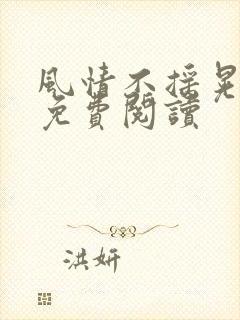 風情不採晃
免費閱讀
洪妍